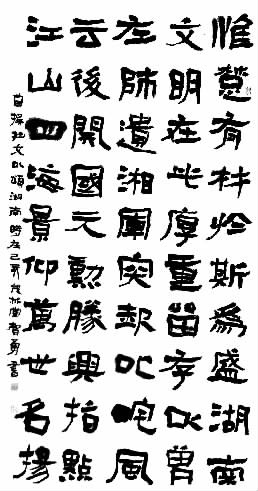 惟楚有材於斯為盛湖南
文明在此厚重留存以曾
左師遺湘軍突起叱咤風
云後開國元勳勝興指點
江山四海景仰萬世名揚
自撰文以頌湖南時在己亥書